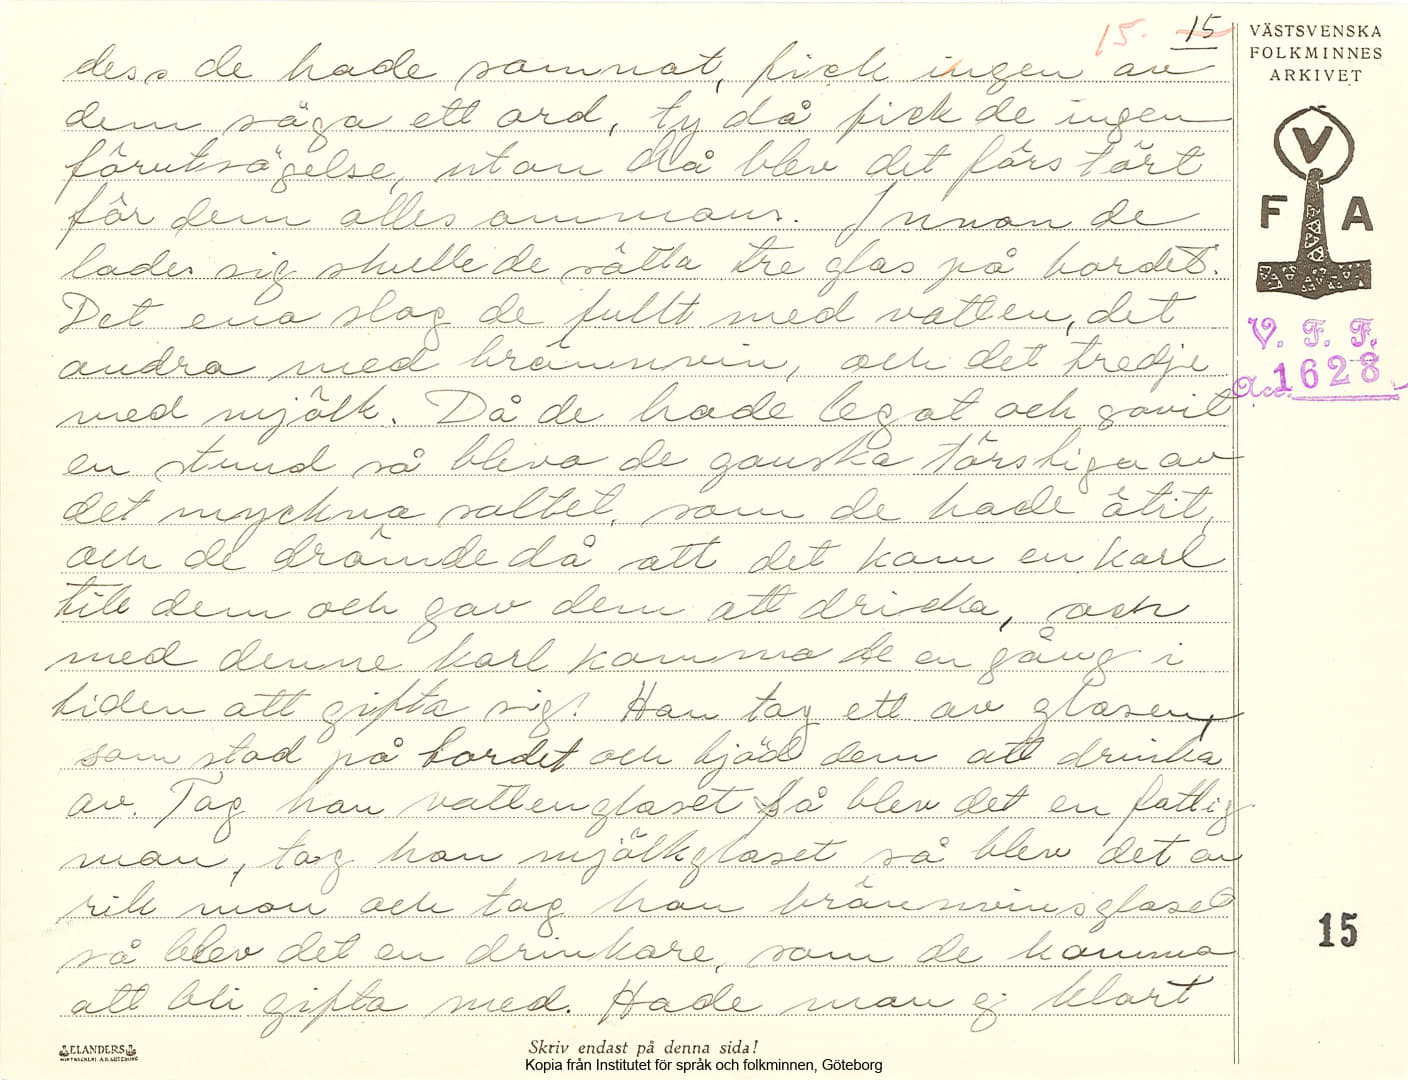 15. 15
dess de hade somnat, fick ingen av
dem säga ett ord, ty då fick de ingen
förutsägelse, utan då blev det förstört
för dem allesammans. Innan de
lades sig skulle de sätta tre glas på bordet.
Det ena slog de fullt med vatten, det
andra med brännvin, och det tredje
med mjölk. Då de hade legat och sovit
en stund så blevo de ganska törstiga av
det myckna saltet, som de hade ätit,
och de drömde då att det kom en karl
till dem och gav dem att dricka, och
med denne karl komma de en gång i
tiden att gifta sig! Han tog ett av glasen,
som stod på bordet och bjöd dem att drinka
av. Tog han vattenglaset så blev det en fattig
man, tog han mjölkglaset så blev det en
rik man och tog han brännvinsglaset
så blev det en drinkare, som de komma
att bli gifta med. Hade man ej klart
VÄSTSVENSKA
FOLKMINNES
ARKIVET
V
F A
V. F. F.
Acc. 1628
15
ELANDERS
Skriv endast på denna sida!
Kopia från Institutet för språk och folkminnen, Göteborg